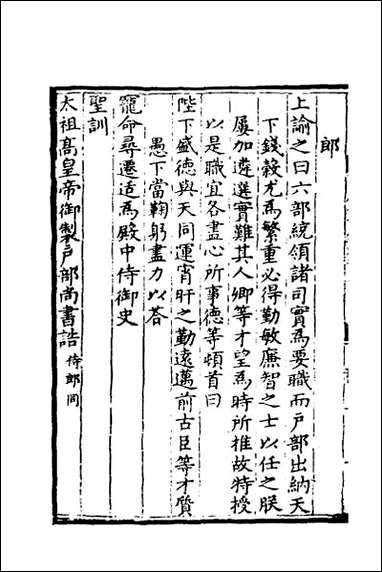 郎
上諭之曰六部統領諸司實爲要職而戶部出納天
下錢榖尤爲繁重必得勤敏廉智之士以任之朕
屢加遴選實難其人卿等才望爲時所推故特授
以是職宜各盡心所事德等頓首曰
陛下盛德與天同運宵旰之勤遠邁前古臣等才質
愚下當鞠躬盡力以荅
寵命尋遷适爲殿中侍御史
聖訓
太祖髙皇帝御製戶部尚書誥侍郎同